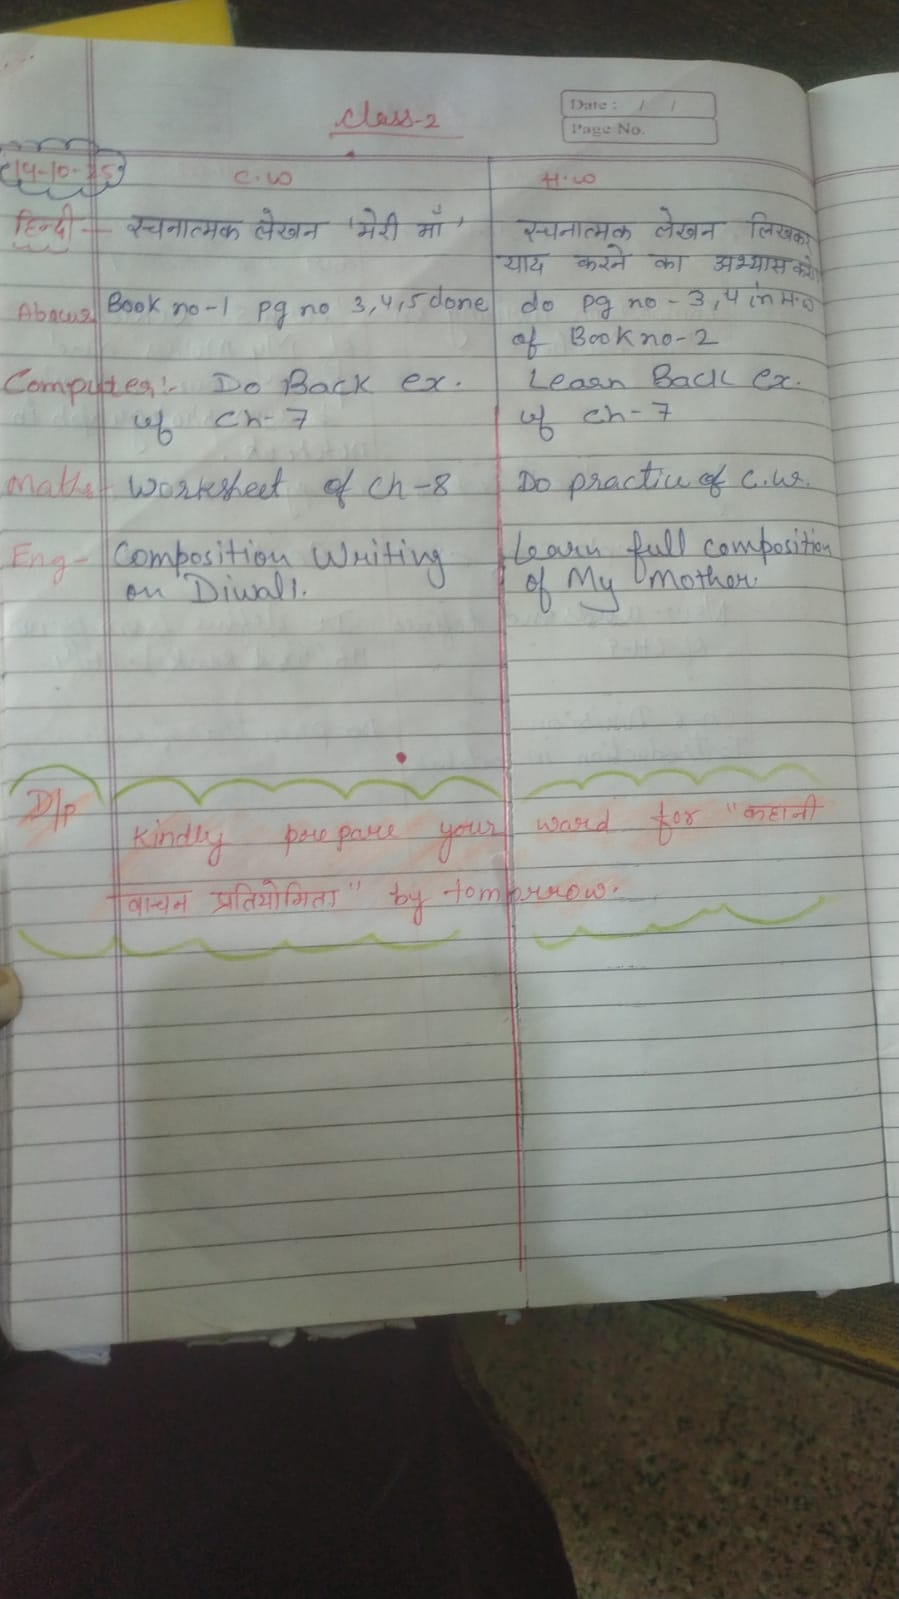 Class-2
Date : / /
Page No.
14-10-25
C.W
H.W
हिन्दी - रचनात्मक लेखन 'मेरी माँ'
रचनात्मक लेखन लिखकर
याद करने का अभ्यास करो
Abacus Book no-1 pg no 3,4,5 done
do pg no - 3,4 in H.W
of Book no-2
Computer:- Do Back ex.
of Ch-7
Learn Back ex.
of Ch-7
Maths- Worksheet of Ch-8
Do practice of C.W.
Eng- Composition Writing
on Diwali.
Learn full composition
of My Mother.
D/P
Kindly prepare your ward for "कहानी
वाचन प्रतियोगिता" by tomorrow.